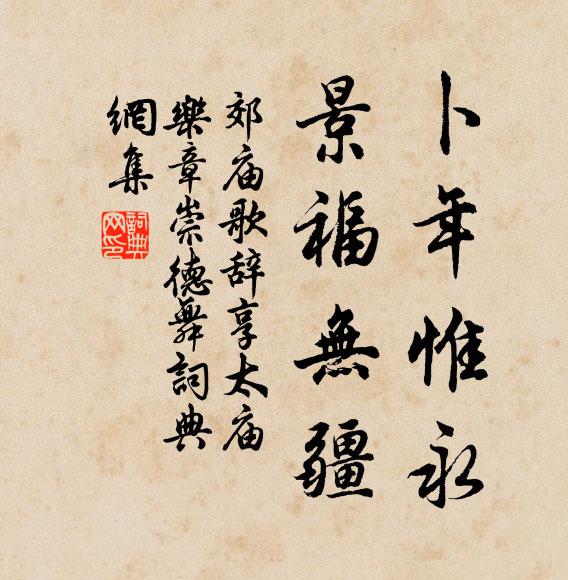 卜年惟永
景福無疆
郊庙歌辞享太庙
樂章崇德舞詞典
網集
詞典网印